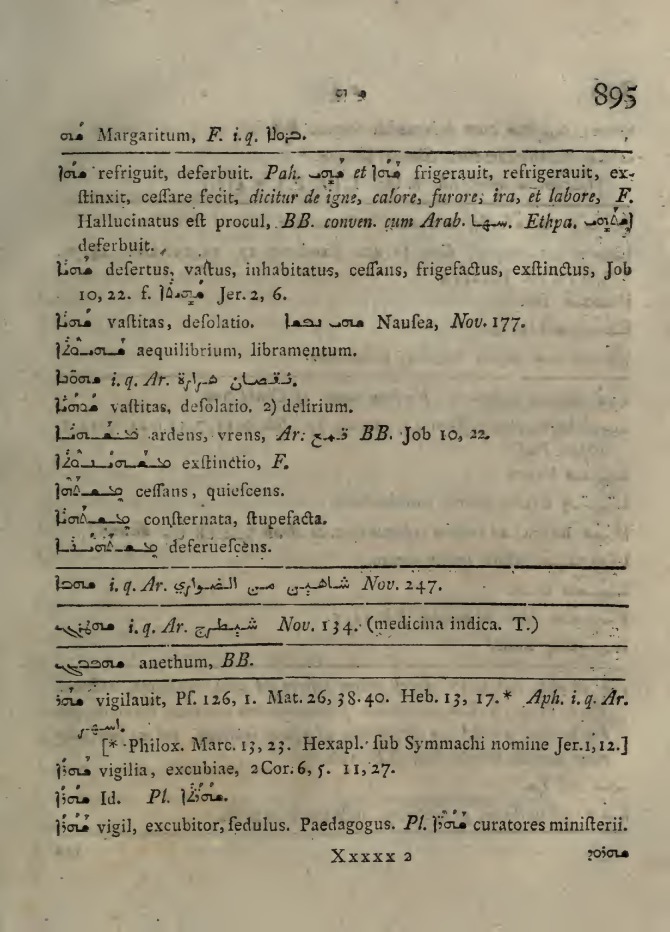 ܫ ܗ 895
ܫܗ Margaritum, F. i. q.
ܫܗܐ refriguit, deferbuit. Pah. ܫܗܝ et ܫܗܐ frigerauit, refrigerauit, ex-
ſtinxit, ceſſare fecit, dicitur de igne, calore, furore, ira, et labore, F.
Hallucinatus eſt procul, BB. conven. cum Arab. سها. Ethpa. ܐܫܬܗܝ
deferbuit.
ܫܗܝܐ defertus, vaſtus, inhabitatus, ceſſans, frigefactus, exſtinctus, Job
10, 22. f. ܫܗܝܬܐ Jer. 2, 6.
ܫܗܝܐ vaſtitas, deſolatio. ܫܗܝ ܢܦܫܐ Nauſea, Nov. 177.
aequilibrium, libramentum.
i. q. Ar. نقصان حرارة.
vaſtitas, deſolatio. 2) delirium.
ardens, vrens, Ar: BB. Job 10, 22.
exſtinctio, F.
ceſſans, quieſcens.
conſternata, ſtupefacta.
deferueſcens.
ܫܗܒܐ i. q. Ar. شاهين من الضواري Nov. 247.
i. q. Ar. شيطرج Nov. 134. (medicina indica. T.)
anethum, BB.
ܫܗܪ vigilauit, Pſ. 126, 1. Mat. 26, 38. 40. Heb. 13, 17.* Aph. i. q. Ar.
اسهر.
[* Philox. Marc. 13, 23. Hexapl. ſub Symmachi nomine Jer. 1, 12.]
ܫܗܪܐ vigilia, excubiae, 2 Cor. 6, 5. 11, 27.
ܫܗܪܐ Id. Pl.
ܫܗܪܐ vigil, excubitor, ſedulus. Paedagogus. Pl. ܫܗܪܐ curatores miniſterii.
Xxxxx 2 ܫܗܪܘ